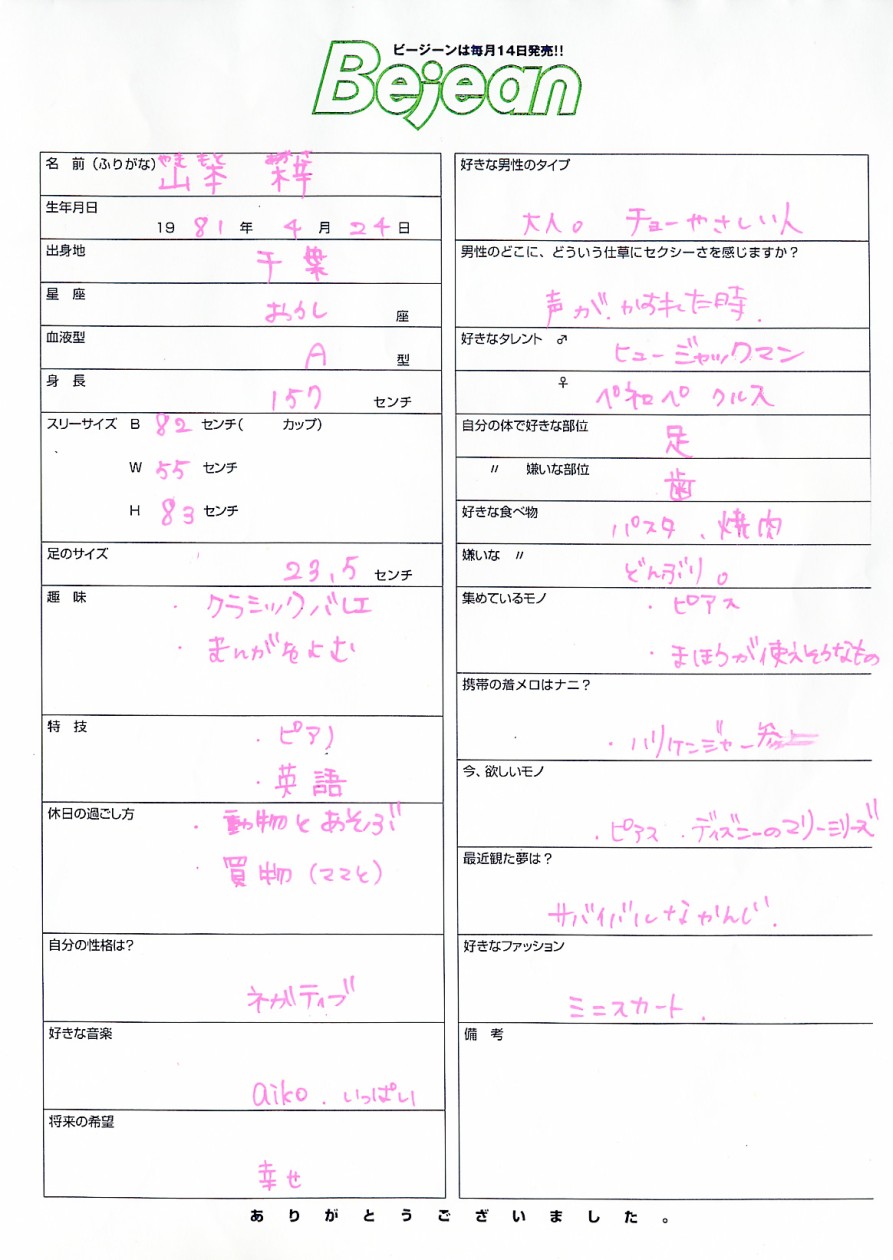 ビージーンは毎月14日発売!!
Bejean
名 前(ふりがな) やまもと あずさ
山本 梓
生年月日
19 81 年 4 月 24 日
出身地
千葉
星 座
おうし 座
血液型
A 型
身 長
157 センチ
スリーサイズ B 82 センチ( カップ)
W 55 センチ
H 83 センチ
足のサイズ
23.5 センチ
趣 味
・クラシックバレエ
・まんがをよむ
特 技
・ピアノ
・英語
休日の過ごし方
・動物とあそぶ
・買物(ママと)
自分の性格は?
ネガティブ
好きな音楽
aiko. いっぱい
将来の希望
幸せ
好きな男性のタイプ
大人。 チョーやさしい人
男性のどこに、どういう仕草にセクシーさを感じますか?
声が、かすれた時.
好きなタレント ♂
ヒュー ジャックマン
♀
ペネロペ クルス
自分の体で好きな部位
足
〃 嫌いな部位
歯
好きな食べ物
パスタ、焼肉
嫌いな 〃
どんぶり。
集めているモノ
・ピアス
・まほうが使えそうなもの
携帯の着メロはナニ?
・ハリケンジャー参上
今、欲しいモノ
・ピアス ・ディズニーのマリーシリーズ
最近観た夢は?
サバイバルなかんじ.
好きなファッション
ミニスカート.
備 考
ありがとうございました。